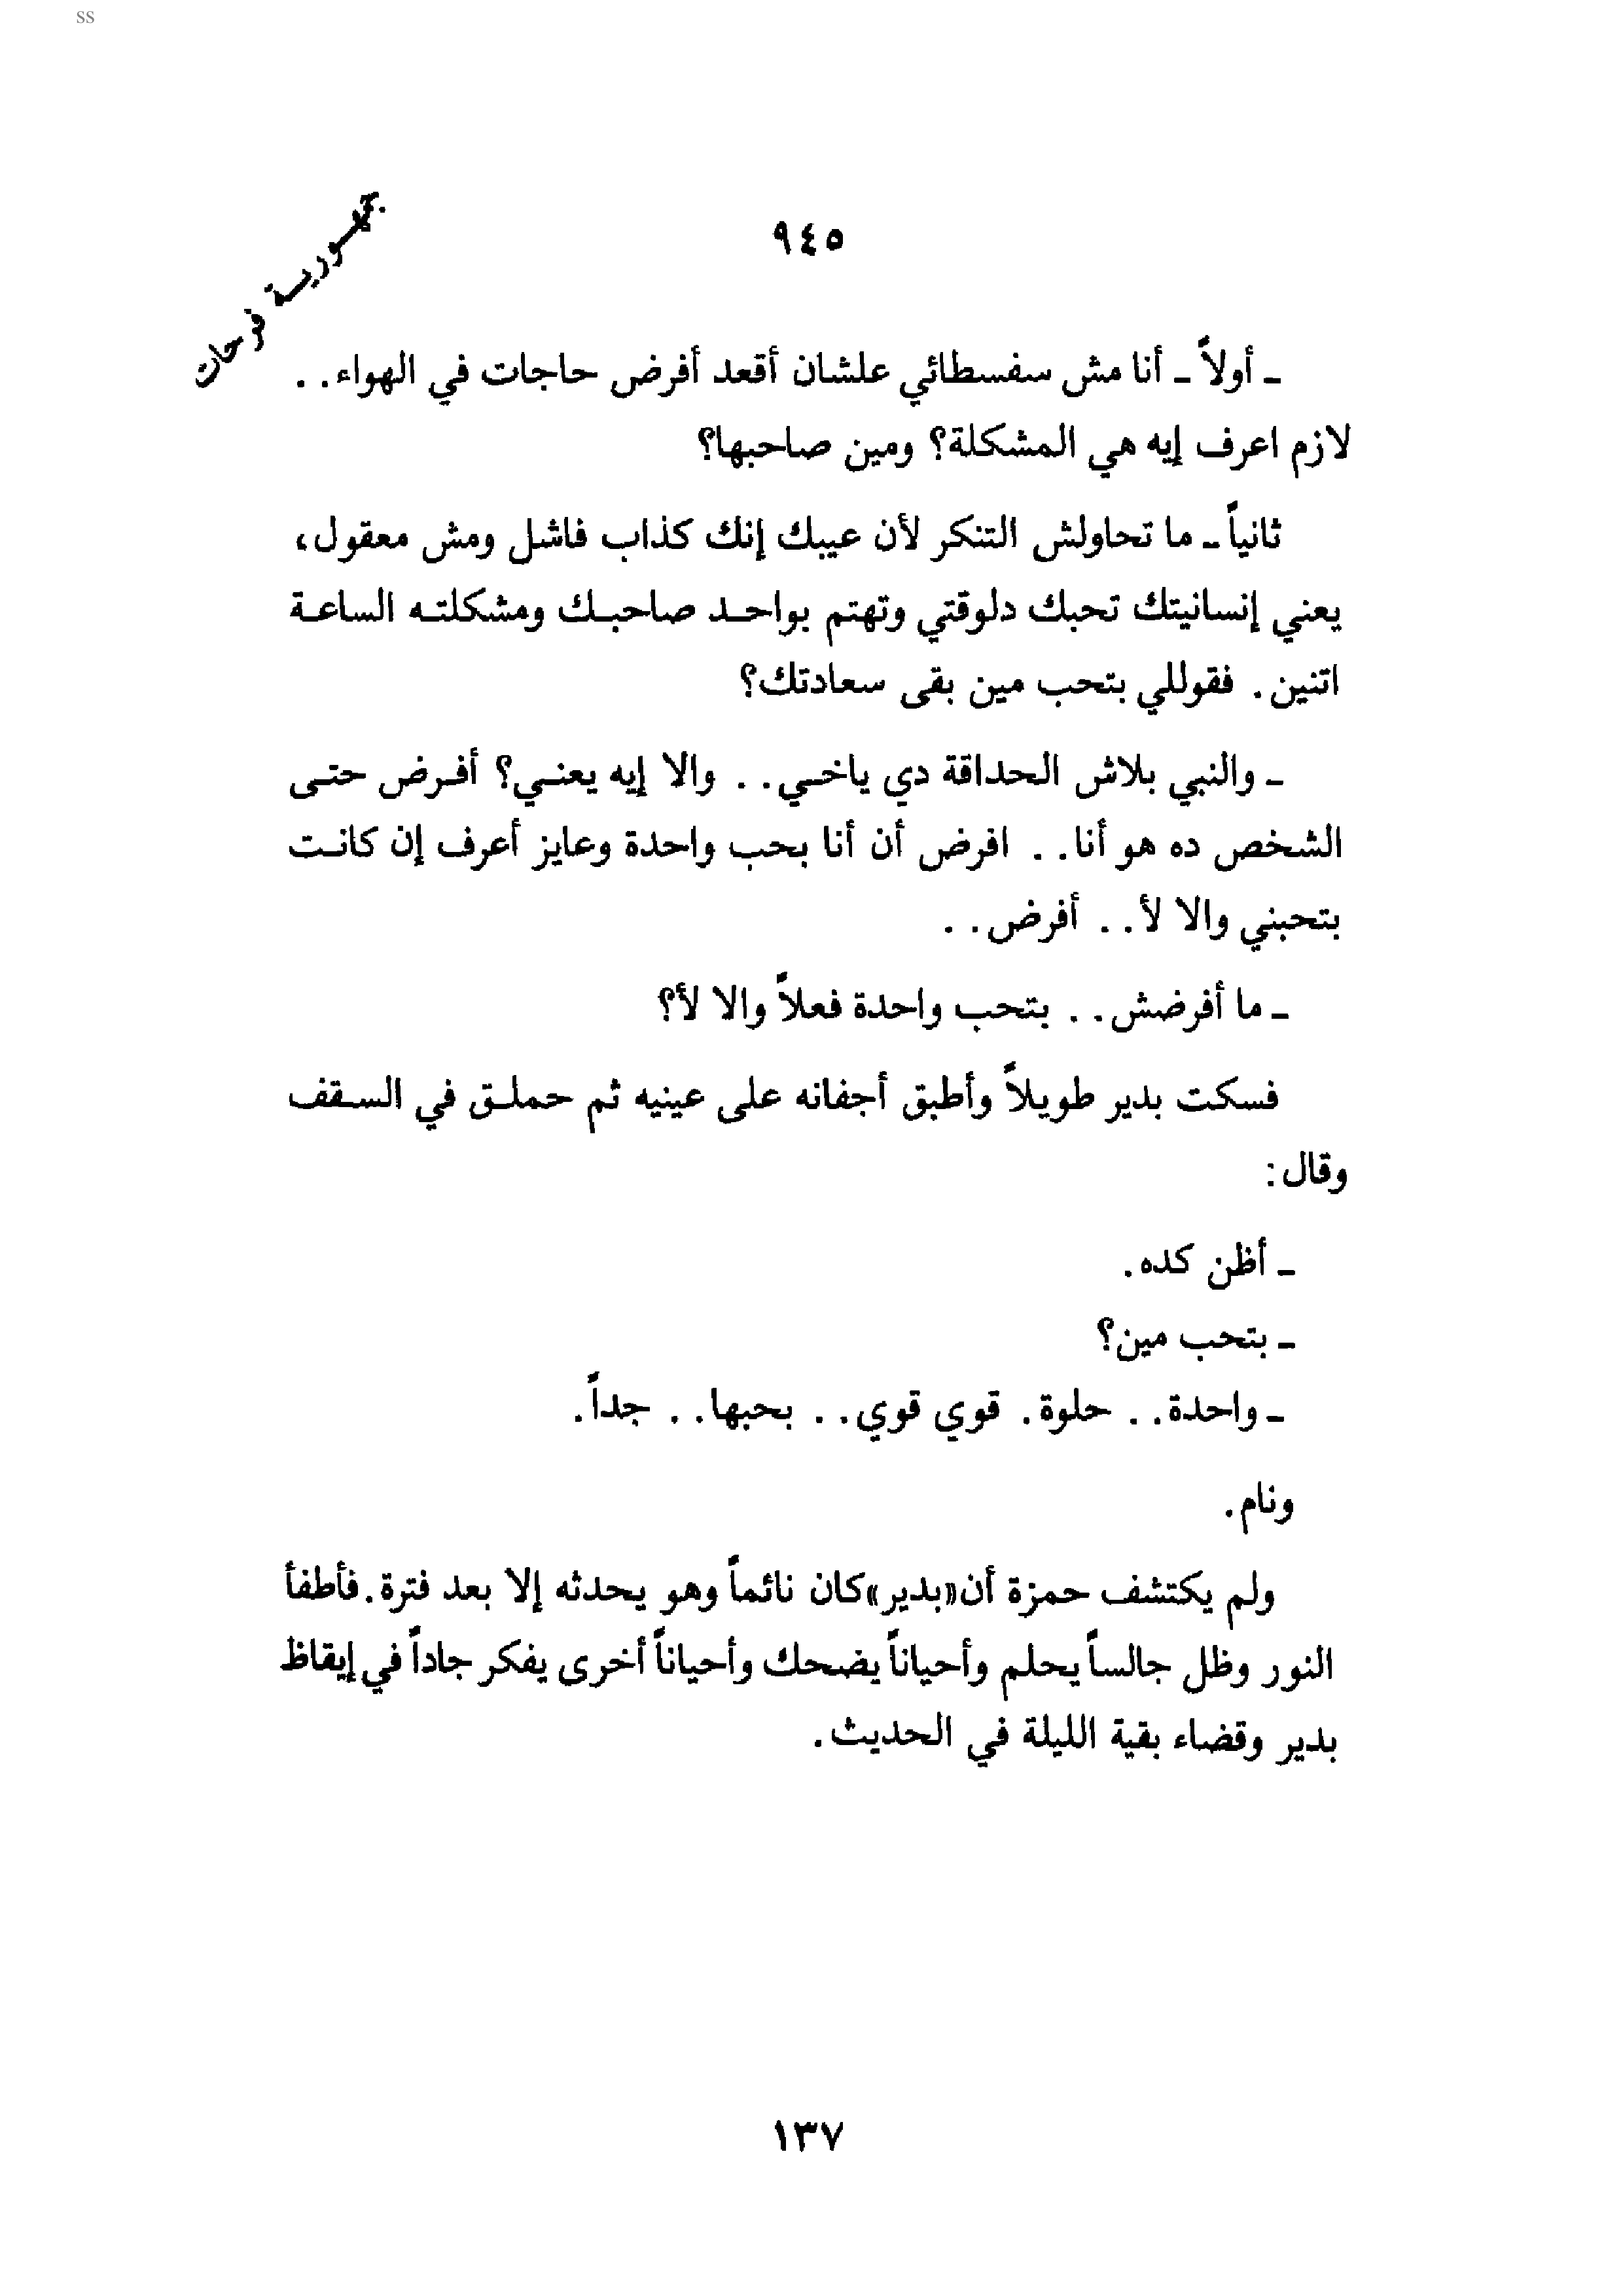 ss
جمهورية فرحات
٩٤٥
ـ أولاً ـ أنا مش سفسطائي علشان أقعد أفرض حاجات في الهواء. .
لازم اعرف إيه هي المشكلة؟ ومين صاحبها؟
ثانياً ـ ما تحاولش التنكر لأن عيبك إنك كذاب فاشل ومش معقول،
يعني إنسانيتك تحبك دلوقتي وتهتم بواحد صاحبك ومشكلته الساعة
اتنين. فقوللي بتحب مين بقى سعادتك؟
ـ والنبي بلاش الحداقة دي ياخي. . والا إيه يعني؟ أفرض حتى
الشخص ده هو أنا. . افرض أن أنا بحب واحدة وعايز أعرف إن كانت
بتحبني والا لأ. . أفرض. .
ـ ما أفرضش. . بتحب واحدة فعلاً والا لأ؟
فسكت بدير طويلاً وأطبق أجفانه على عينيه ثم حملق في السقف
وقال:
ـ أظن كده.
ـ بتحب مين؟
ـ واحدة. . حلوة. قوي قوي. . بحبها. . جداً.
ونام.
ولم يكتشف حمزة أن«بدير»كان نائماً وهو يحدثه إلا بعد فترة.فأطفأ
النور وظل جالساً يحلم وأحياناً يضحك وأحياناً أخرى يفكر جاداً في إيقاظ
بدير وقضاء بقية الليلة في الحديث.
١٣٧